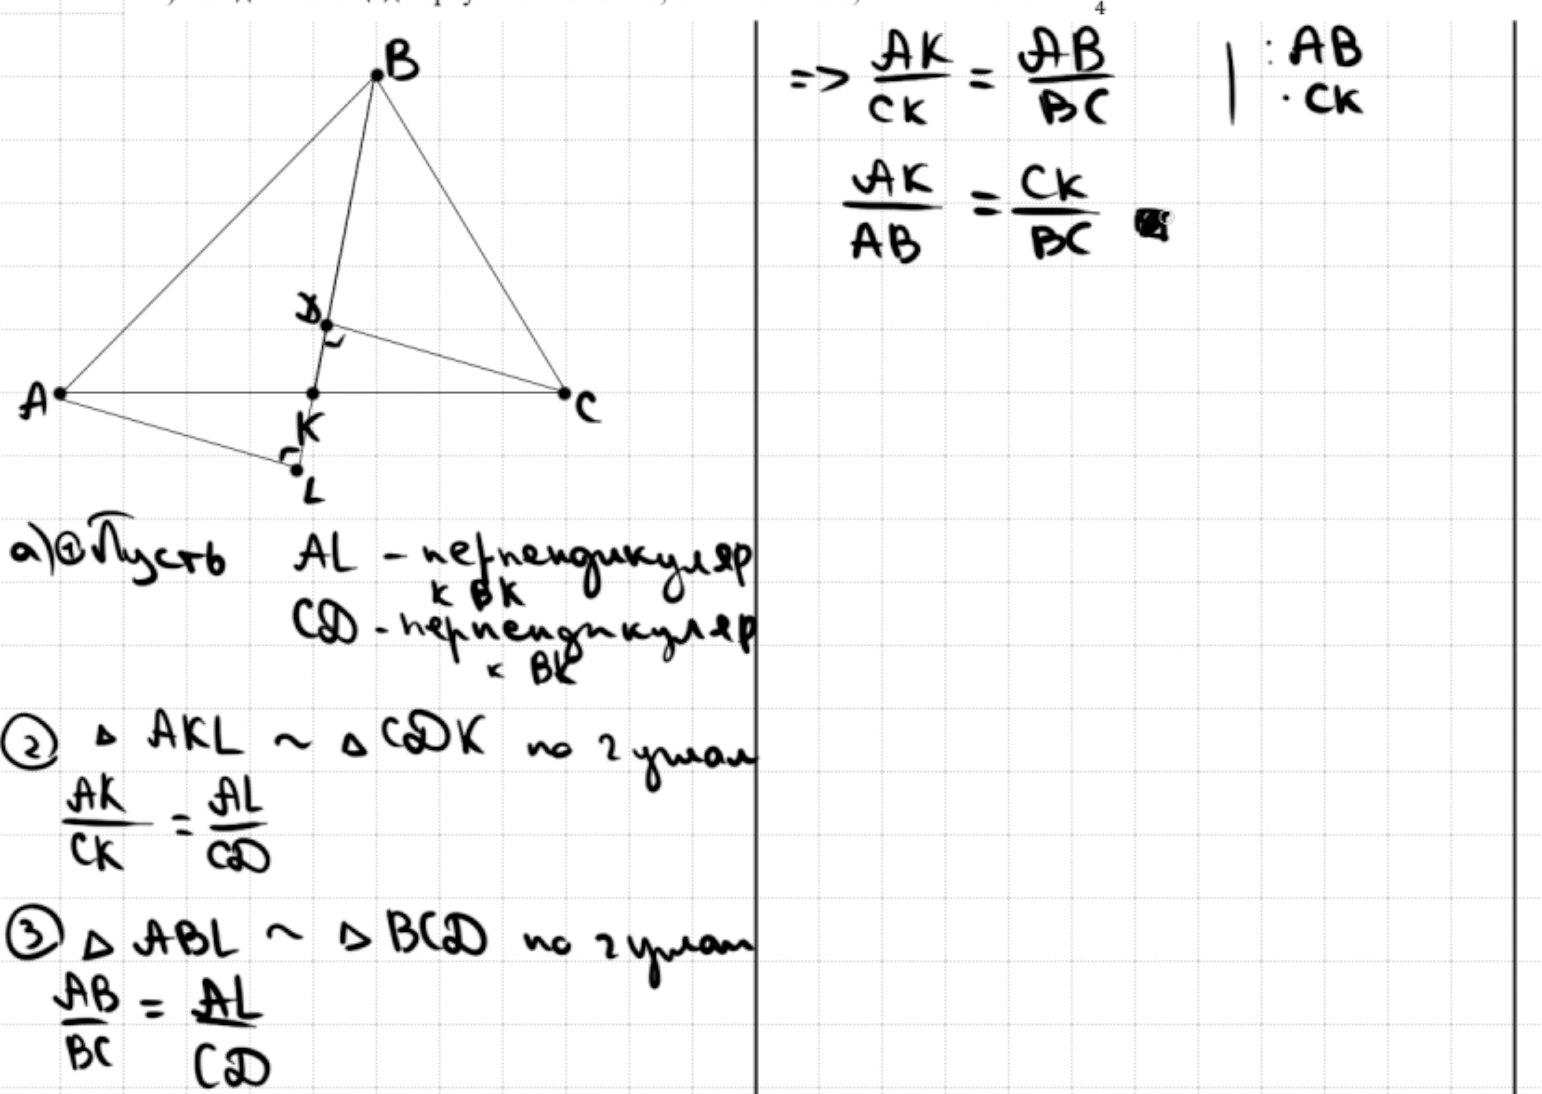 4
B
D
A
K
C
L
а) ① Пусть AL - перпендикуляр
к BK
CD - перпендикуляр
к BK
② △ AKL ~ △ CDK по 2 углам
AK/CK = AL/CD
③ △ ABL ~ △ BCD по 2 углам
AB/BC = AL/CD
=> AK/CK = AB/BC | : AB
· CK
AK/AB = CK/BC